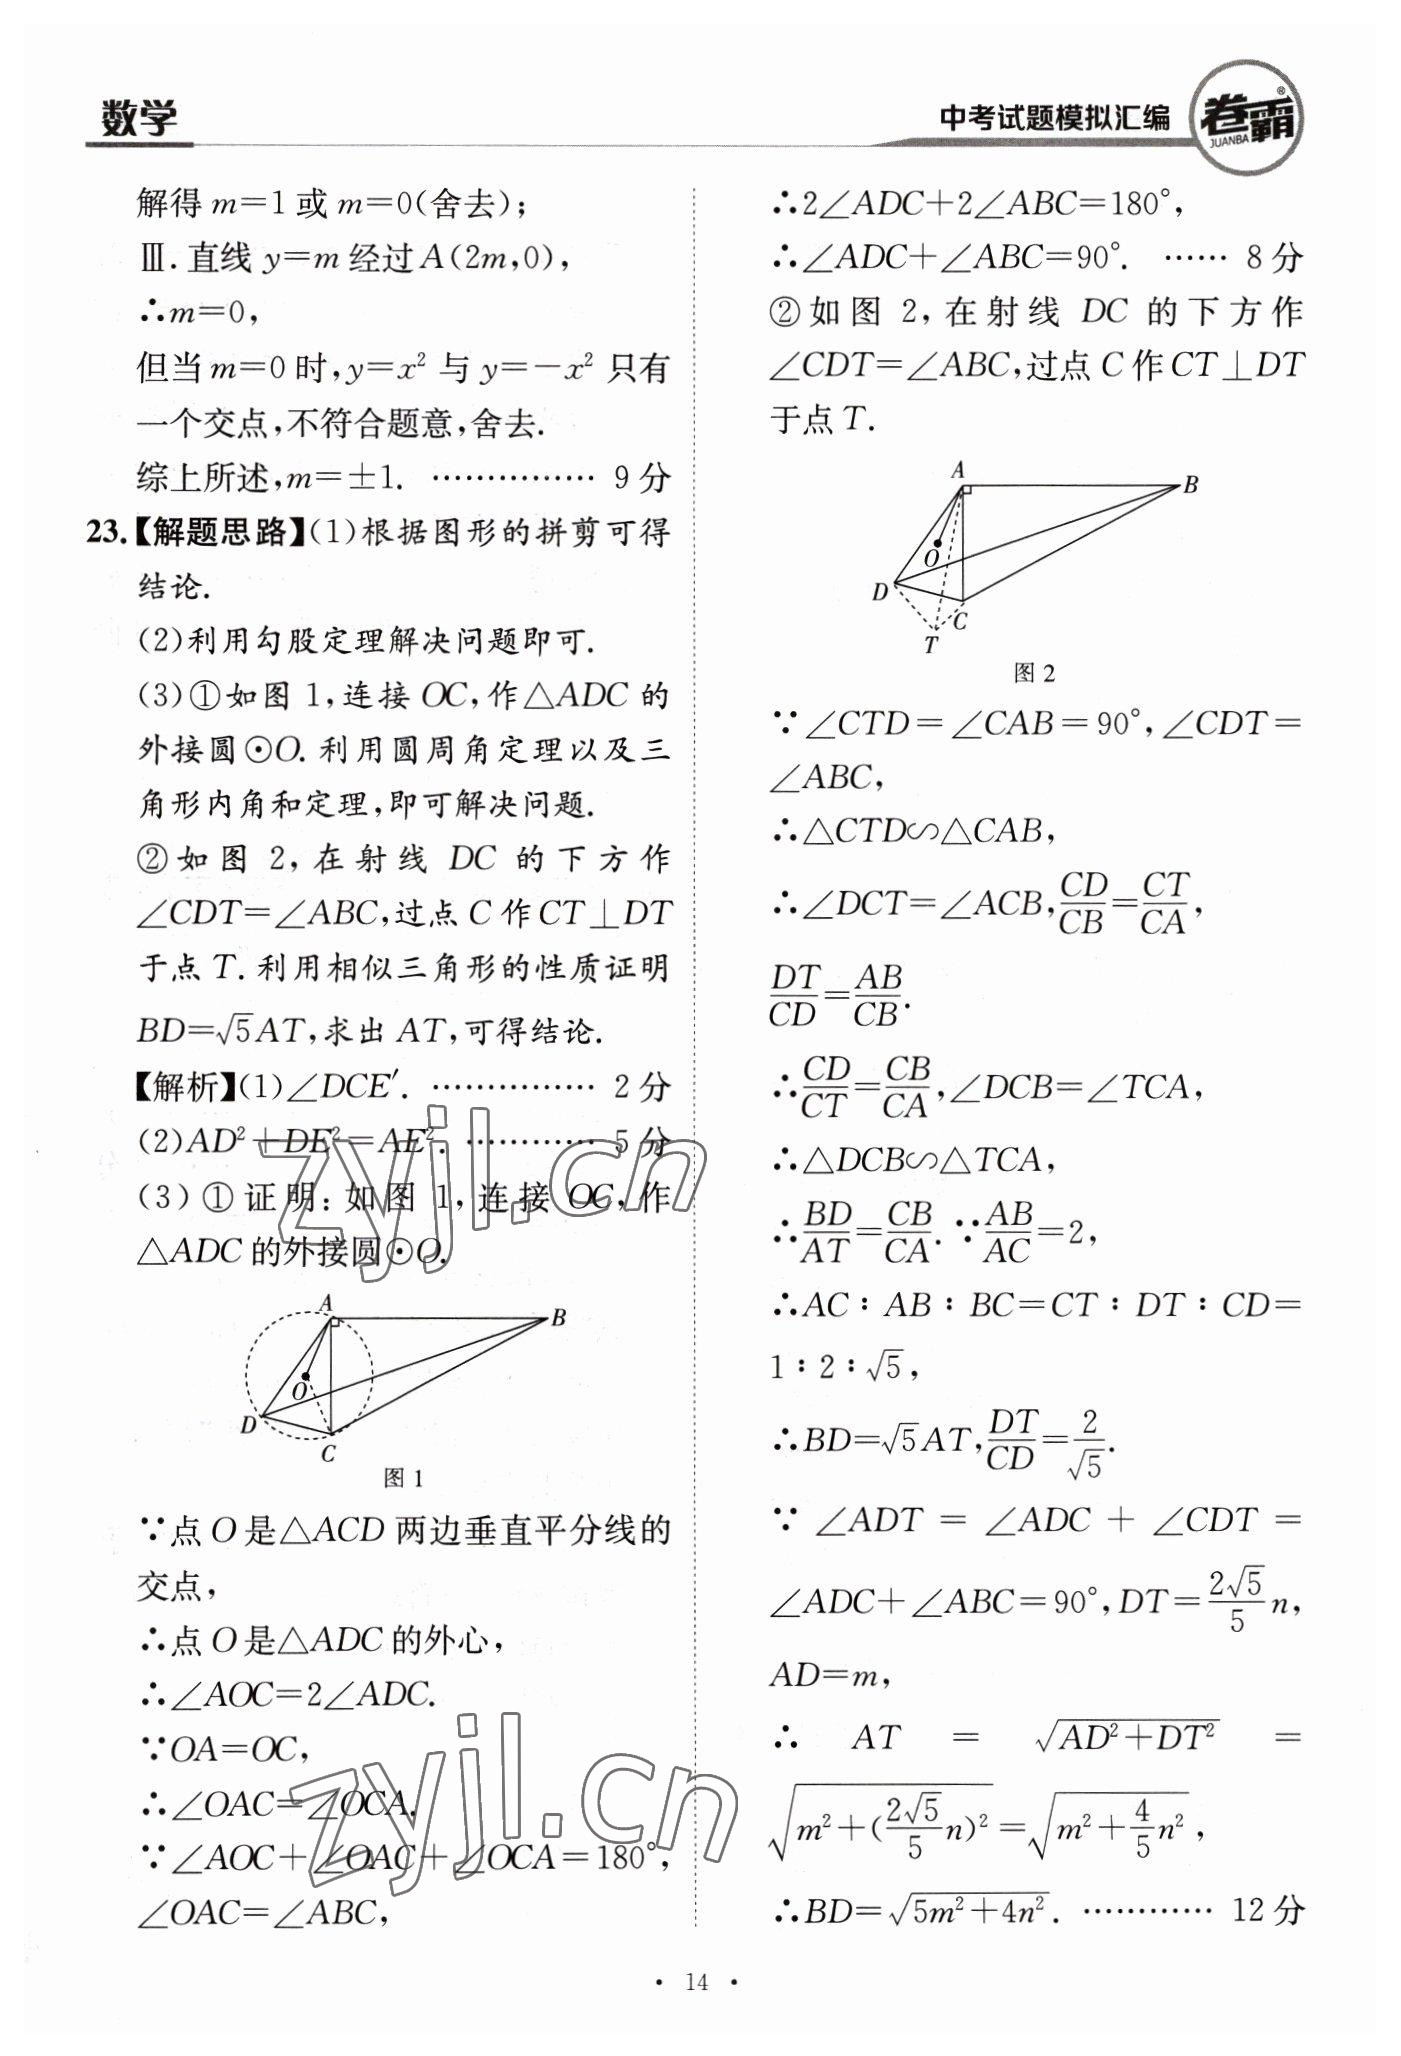 数学
中考试题模拟汇编
卷霸®
JUANBA
解得m=1或m=0(舍去);
Ⅲ.直线y=m经过A(2m,0),
∴m=0,
但当m=0时,y=x²与y=-x²只有
一个交点,不符合题意,舍去.
综上所述,m=±1. …………… 9分
23.【解题思路】(1)根据图形的拼剪可得
结论.
(2)利用勾股定理解决问题即可.
(3)①如图1,连接OC,作△ADC的
外接圆⊙O.利用圆周角定理以及三
角形内角和定理,即可解决问题.
②如图2,在射线DC的下方作
∠CDT=∠ABC,过点C作CT⊥DT
于点T.利用相似三角形的性质证明
BD=√5AT,求出AT,可得结论.
【解析】(1)∠DCE′. …………… 2分
(2)AD²+DE²=AE². ………… 5分
(3)①证明:如图1,连接OC,作
△ADC的外接圆⊙O.
A
B
O
D
C
图1
∵点O是△ACD两边垂直平分线的
交点,
∴点O是△ADC的外心,
∴∠AOC=2∠ADC.
∵OA=OC,
∴∠OAC=∠OCA.
∵∠AOC+∠OAC+∠OCA=180°,
∠OAC=∠ABC,
∴2∠ADC+2∠ABC=180°,
∴∠ADC+∠ABC=90°. …… 8分
②如图2,在射线DC的下方作
∠CDT=∠ABC,过点C作CT⊥DT
于点T.
A
B
O
D
C
T
图2
∵∠CTD=∠CAB=90°,∠CDT=
∠ABC,
∴△CTD∽△CAB,
∴∠DCT=∠ACB,CD/CB=CT/CA,
DT/CD=AB/CB.
∴CD/CT=CB/CA,∠DCB=∠TCA,
∴△DCB∽△TCA,
∴BD/AT=CB/CA.∵AB/AC=2,
∴AC∶AB∶BC=CT∶DT∶CD=
1∶2∶√5,
∴BD=√5AT,DT/CD=2/√5.
∵∠ADT=∠ADC+∠CDT=
∠ADC+∠ABC=90°,DT=2√5/5n,
AD=m,
∴AT=√(AD²+DT²)=
√(m²+(2√5/5n)²)=√(m²+4/5n²),
∴BD=√(5m²+4n²). ………… 12分
zyjl.cn
zyjl.cn
· 14 ·